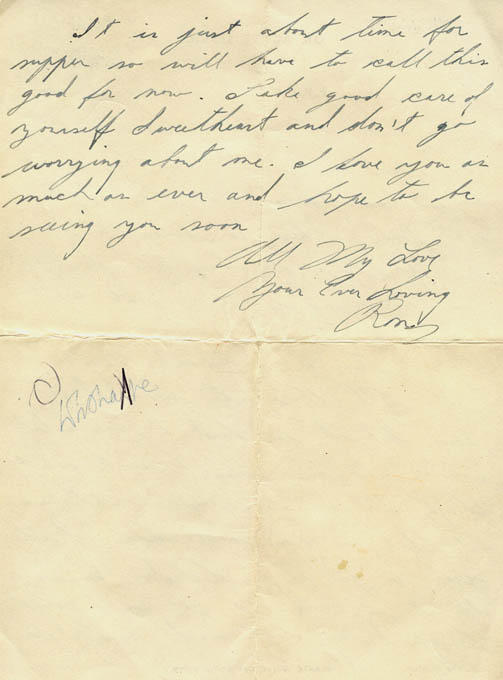 It is just about time for
supper so will have to call this
good for now. Take good care of
yourself Sweetheart and don't go
worrying about me. I love you as
much as ever and hope to be
seeing you soon
All My Love
Your Ever Loving
Ron